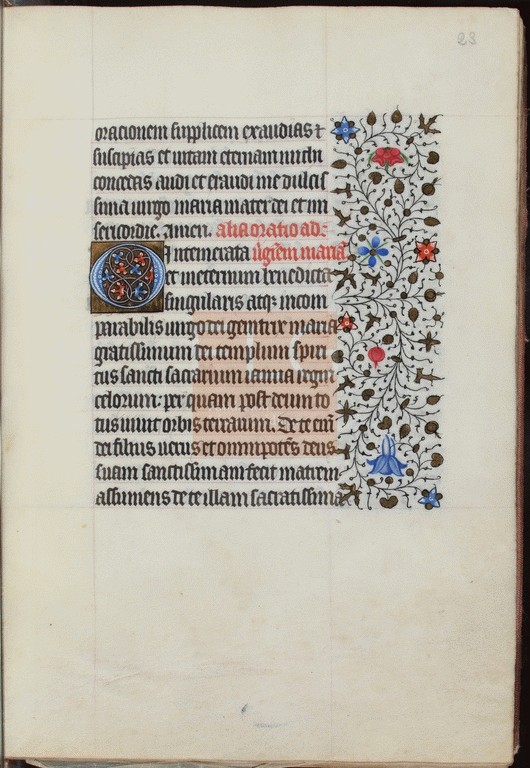 23
orationem supplicem exaudias ⁊
suscipias et uitam eternam michi
concedas audi et exaudi me dulcis
sima uirgo maria mater dei et mi
sericordie. Amen. alia oratio ad
O Intemerata uirgiem maria
et ineternum benedicta
singularis atqꝫ incom
parabilis uirgo dei genitrix maria
gratissimum dei templum spiri
tus sancti sacrarium ianua regni
celorum: per quam post deum to
tus uiuit orbis terrarum. De te eni
dei filius uerus et omnipotēs deus
suam sanctissimam fecit matrem
assumens de te illam sacratissima